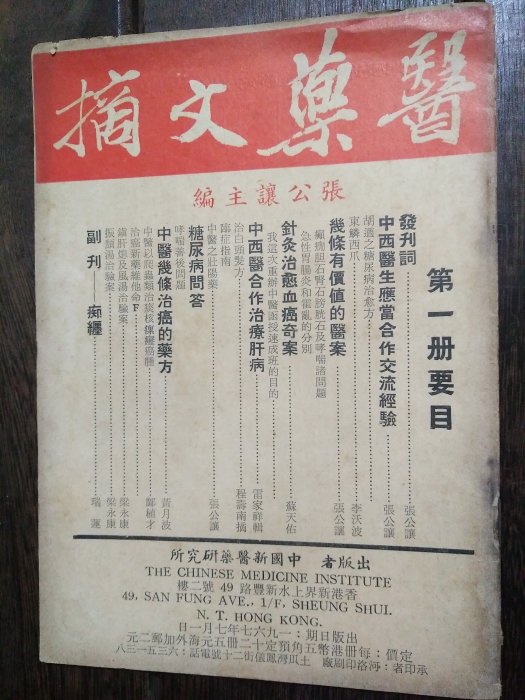 醫藥文摘
張公讓主編
第一册要目
發刊詞……張公讓
中西醫生應當合作交流經驗……張公讓
胡適之糖尿病治愈方
東鱗西爪……李沃波
幾條有價值的醫案……張公讓
癲癇胆石腎石膀胱石及哮喘諸問題
急性胃腸炎和霍亂的分別
針灸治愈血癌奇案……蘇天佑
我這次重辦中醫函授速成班的目的
中西醫合作治療肝病……雷家祥輯
治白頭髮方……程壽南摘
臨症指南
中醫之壯陽藥……張公讓
糖尿病問答
哮喘善後問題
中醫幾條治癌的藥方……黃月波
中醫以爬蟲類治痰核瘰癧癌腫……鄭植才
治癌新藥維他命F
鎮肝熄及風湯治驗案……梁永康
振頹湯治驗案……梁永康
副刊 痴纒……瑞蓮
出版者 中國新醫藥研究所
THE CHINESE MEDICINE INSTITUTE
香港新界上水新豐路49號二樓
49, SAN FUNG AVE., 1/F, SHEUNG SHUI.
N. T. HONG KONG.
出版日期：一九六七年七月一日
定價：每册港幣五角預定十二册五元海外加郵二元
承印者：河洛印刷廠 土瓜灣鳳儀街二十號電話：六三五一三八